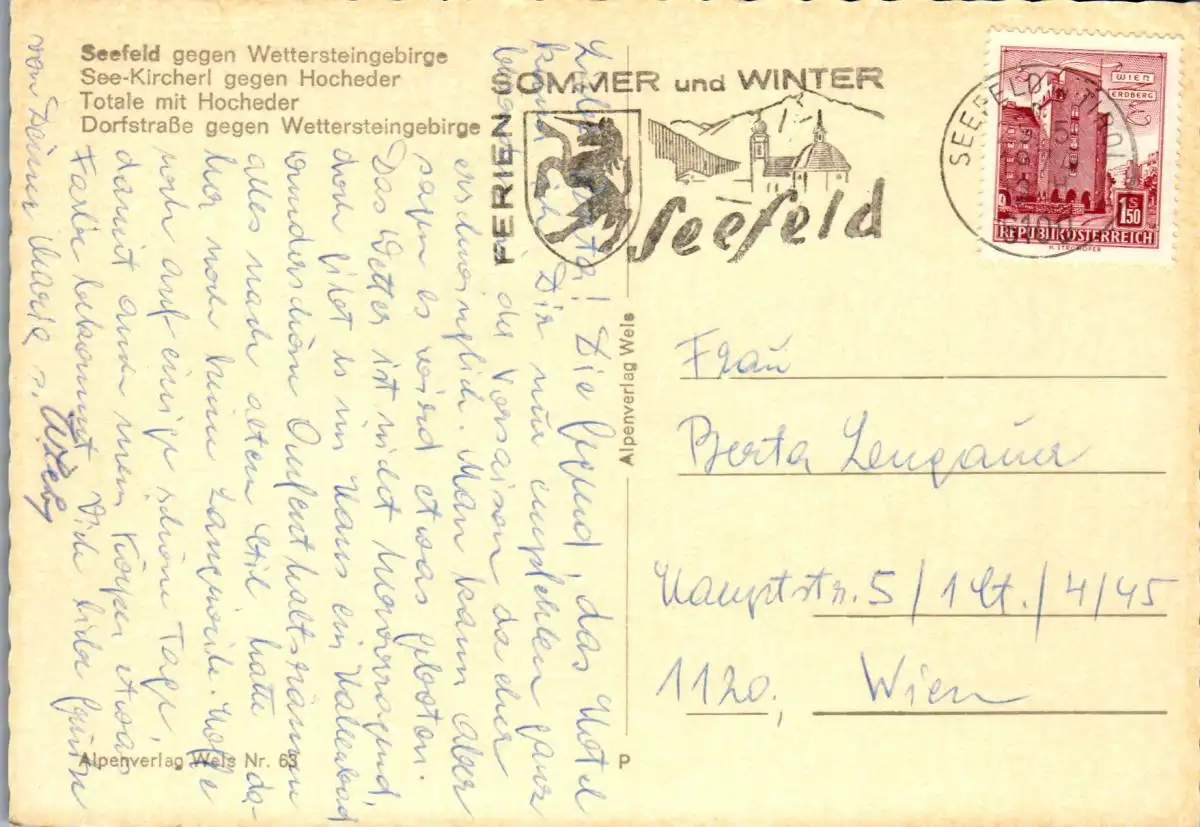 Seefeld gegen Wettersteingebirge
See-Kircherl gegen Hocheder
Totale mit Hocheder
Dorfstraße gegen Wettersteingebirge
FERIEN
SOMMER und WINTER
Seefeld
SEEFELD TIROL
6100
WIEN
ERDBERG
S
1.50
REPUBLIK ÖSTERREICH
Liebe Berta! Die Gegend, das Hotel
kann ich Dir nur empfehlen ganz
in der Vorsaison da eher
erschwinglich. Man kann aber
sagen es wird etwas geboten.
Das Wetter ist nicht hervorragend,
doch gibt es im Haus ein Hallenbad
wunderschöne Aufenthaltsräume
alles nach altem Stil hatte da-
her noch keine Langeweile. Hoffe
noch auf einige schöne Tage,
damit auch mein Körper etwas
Farbe bekommt. Viele liebe Grüße
von Deiner Maria u.
Alpenverlag Wels
Frau
Berta Lengauer
Hauptstr. 5/1 St./4/45
1120, Wien
Alpenverlag Wels Nr. 63
P